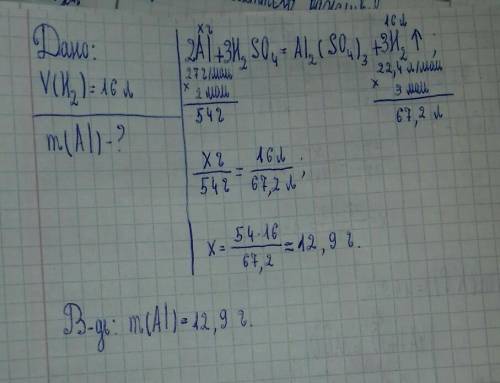 Дано:
V(H₂)=16 л
m(Al)-?
xг 16 л
2Al+3H₂SO₄=Al₂(SO₄)₃+3H₂↑;
27г/моль 22,4 л/моль
× 2 моль × 3 моль
54г 67,2 л
xг/54г = 16л/67,2 л;
x = 54·16/67,2 = 12,9 г.
В-дь: m(Al)=12,9 г.